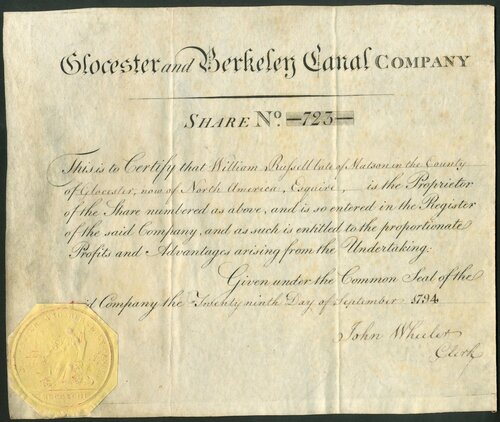 Glocester and Berkeley Canal COMPANY
SHARE No. —723—
This is to Certify that William Russell late of Matson in the County
of Glocester, now of North America, Esquire, is the Proprietor
of the Share numbered as above, and is so entered in the Register
of the said Company, and as such is entitled to the proportionate
Profits and Advantages arising from the Undertaking:
Given under the Common Seal of the
said Company the Twenty ninth Day of September 1794
John Wheeler
Clerk